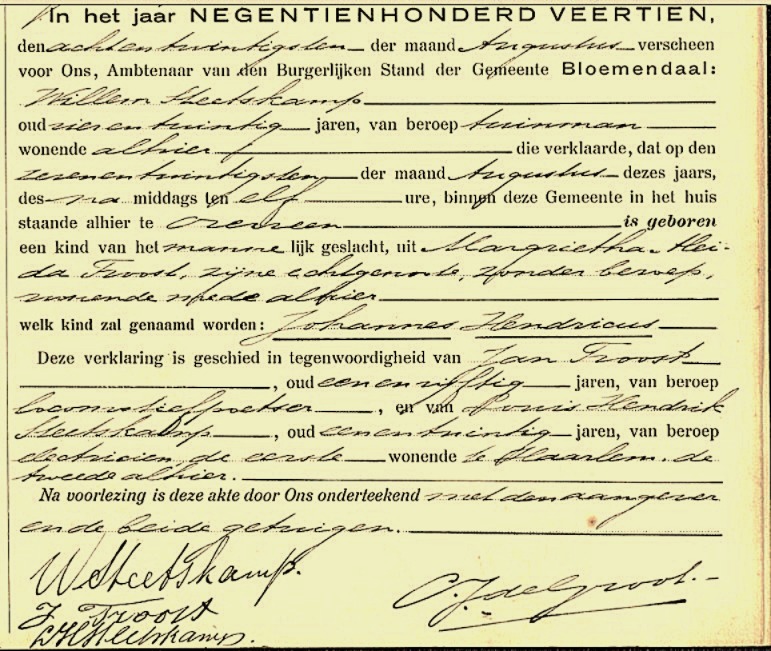 In het jaar NEGENTIENHONDERD VEERTIEN,
den achtentwintigsten der maand Augustus verscheen
voor Ons, Ambtenaar van den Burgerlijken Stand der Gemeente Bloemendaal:
Willem Sleetskamp
oud vierentwintig jaren, van beroep tuinman
wonende alhier die verklaarde, dat op den
zevenentwintigsten der maand Augustus dezes jaars,
des na middags ten elf ure, binnen deze Gemeente in het huis
staande alhier te Overveen is geboren
een kind van het manne lijk geslacht, uit Margrietha
da Troost, zijne echtgenoote, zonder beroep,
wonende mede alhier
welk kind zal genaamd worden: Johannes Hendricus
Deze verklaring is geschied in tegenwoordigheid van Jan Troost
, oud eenenvijftig jaren, van beroep
locomotiefpoetser , en van Louis Hendrik
Sleetskamp , oud eenentwintig jaren, van beroep
electricien, de eerste wonende te Haarlem, de
tweede alhier.
Na voorlezing is deze akte door Ons onderteekend met den aangever
en de beide getuigen.
W Sleetskamp.
J Troost
L H Sleetskamp.
C. J. de Groot.